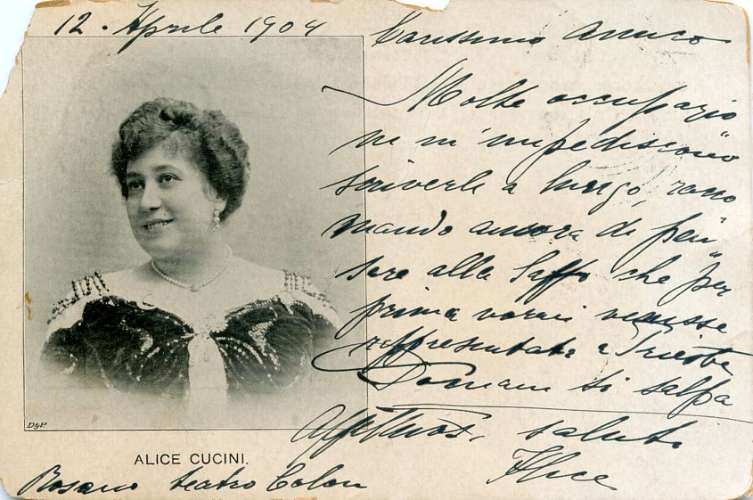 12. Aprile 1904
Carissimo Amico
Molte occupazio
ni m'impediscono
scriverle a lungo,
mando ancora di pen
sare alla Saffo che per
prima vorrei venisse
rappresentata a Trieste
Domani si salpa
Affettuos. saluti
Alice
DGP.
ALICE CUCINI.
Rosario teatro Colon